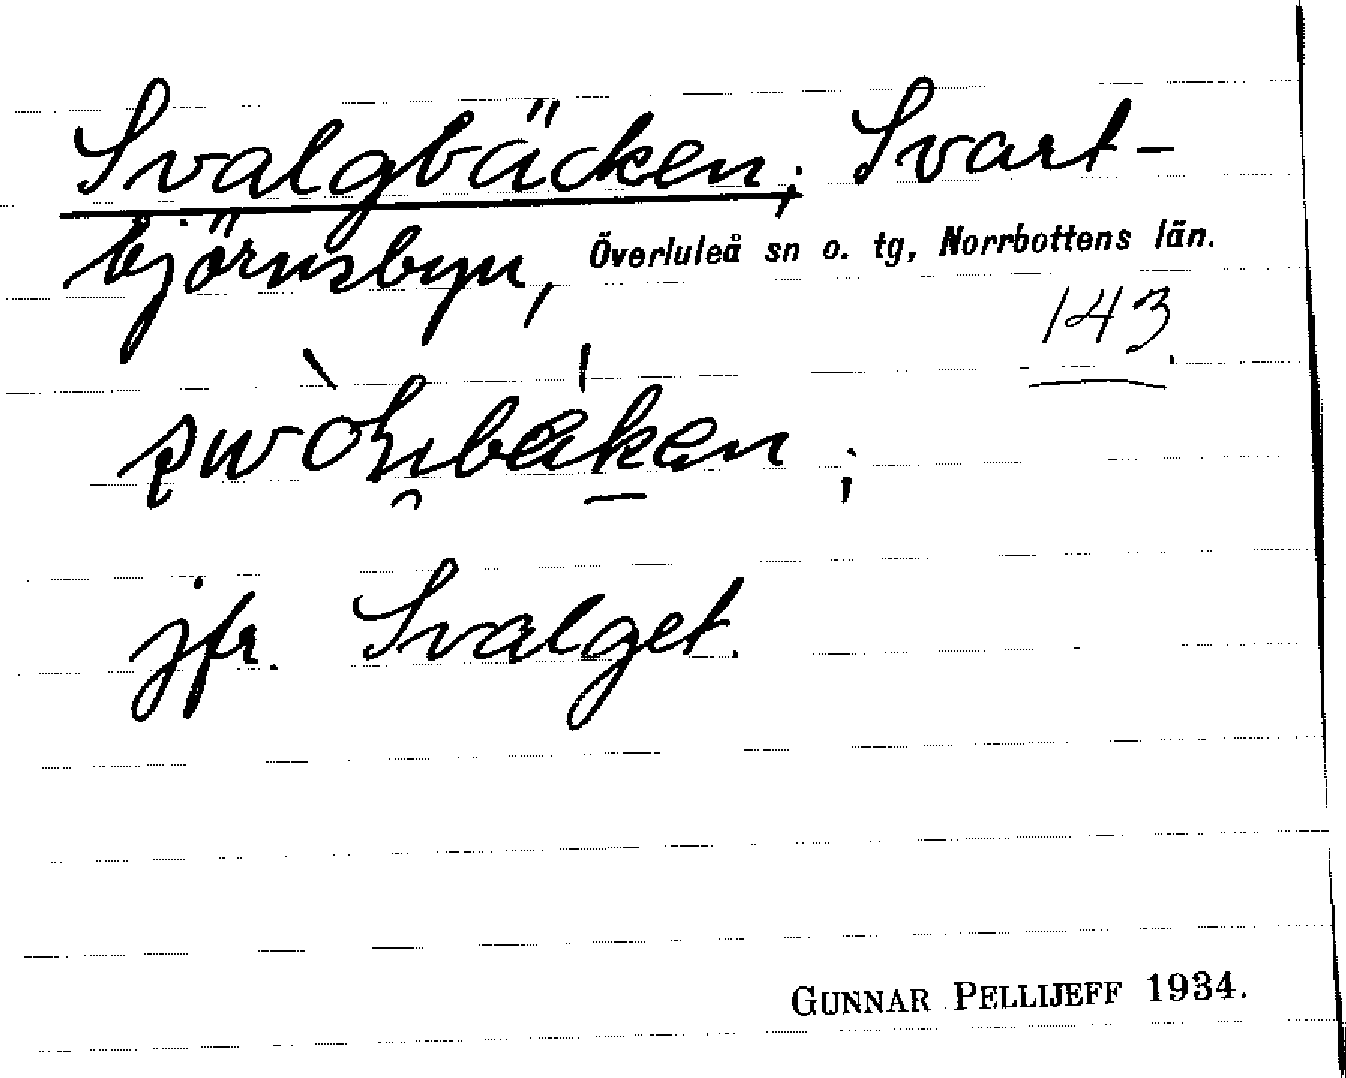 Svalgbäcken; Svart-
björnsbyn, Överluleå sn o. tg, Norrbottens län.
143.
jfr. Svalget.
GUNNAR PELLIJEFF 1934.